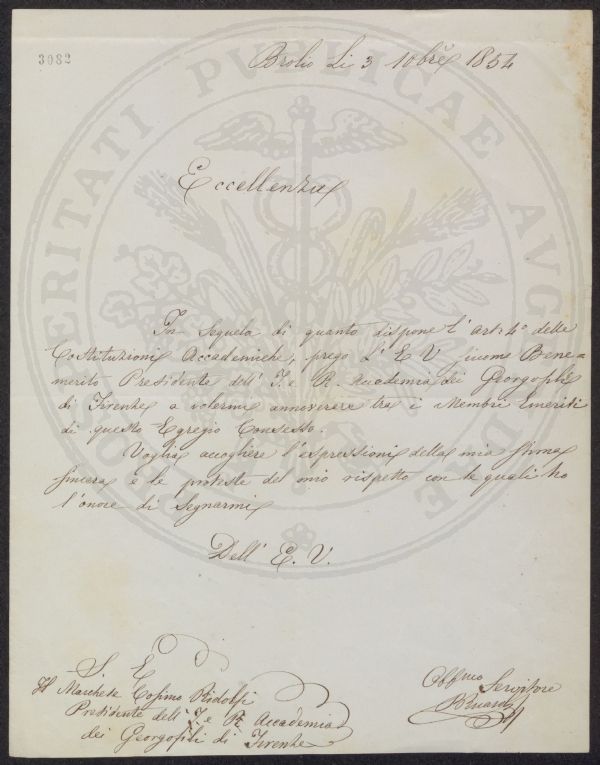 3082
Brolio Li 3 10bre 1854
Eccellenza
In sequela di quanto dispone l'art: 4° delle
Costituzioni Accademiche, prego L'E V siccome Bene=
merito Presidente dell' I. e R. Accademia dei Georgofili
di Firenze a volermi annoverare tra i Membri Emeriti
di questo Egregio Consesso.
Voglia accogliere l'espressioni della mia stima
sincera e le proteste del mio rispetto con le quali ho
l'onore di Segnarmi
Dell' E. V.
S E
Il Marchese Cosimo Ridolfi
Presidente dell' I e R Accademia
dei Georgofili di Firenze
Obbmo Servitore
PROSPERITATI PUBLICAE AUGENDAE